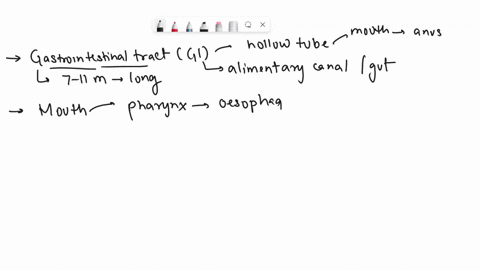 → Gastrointestinal tract (GI) — hollow tube — mouth → anus
↳ alimentary canal / gut
↳ 7-11 m → long
→ Mouth — pharynx → oesophag